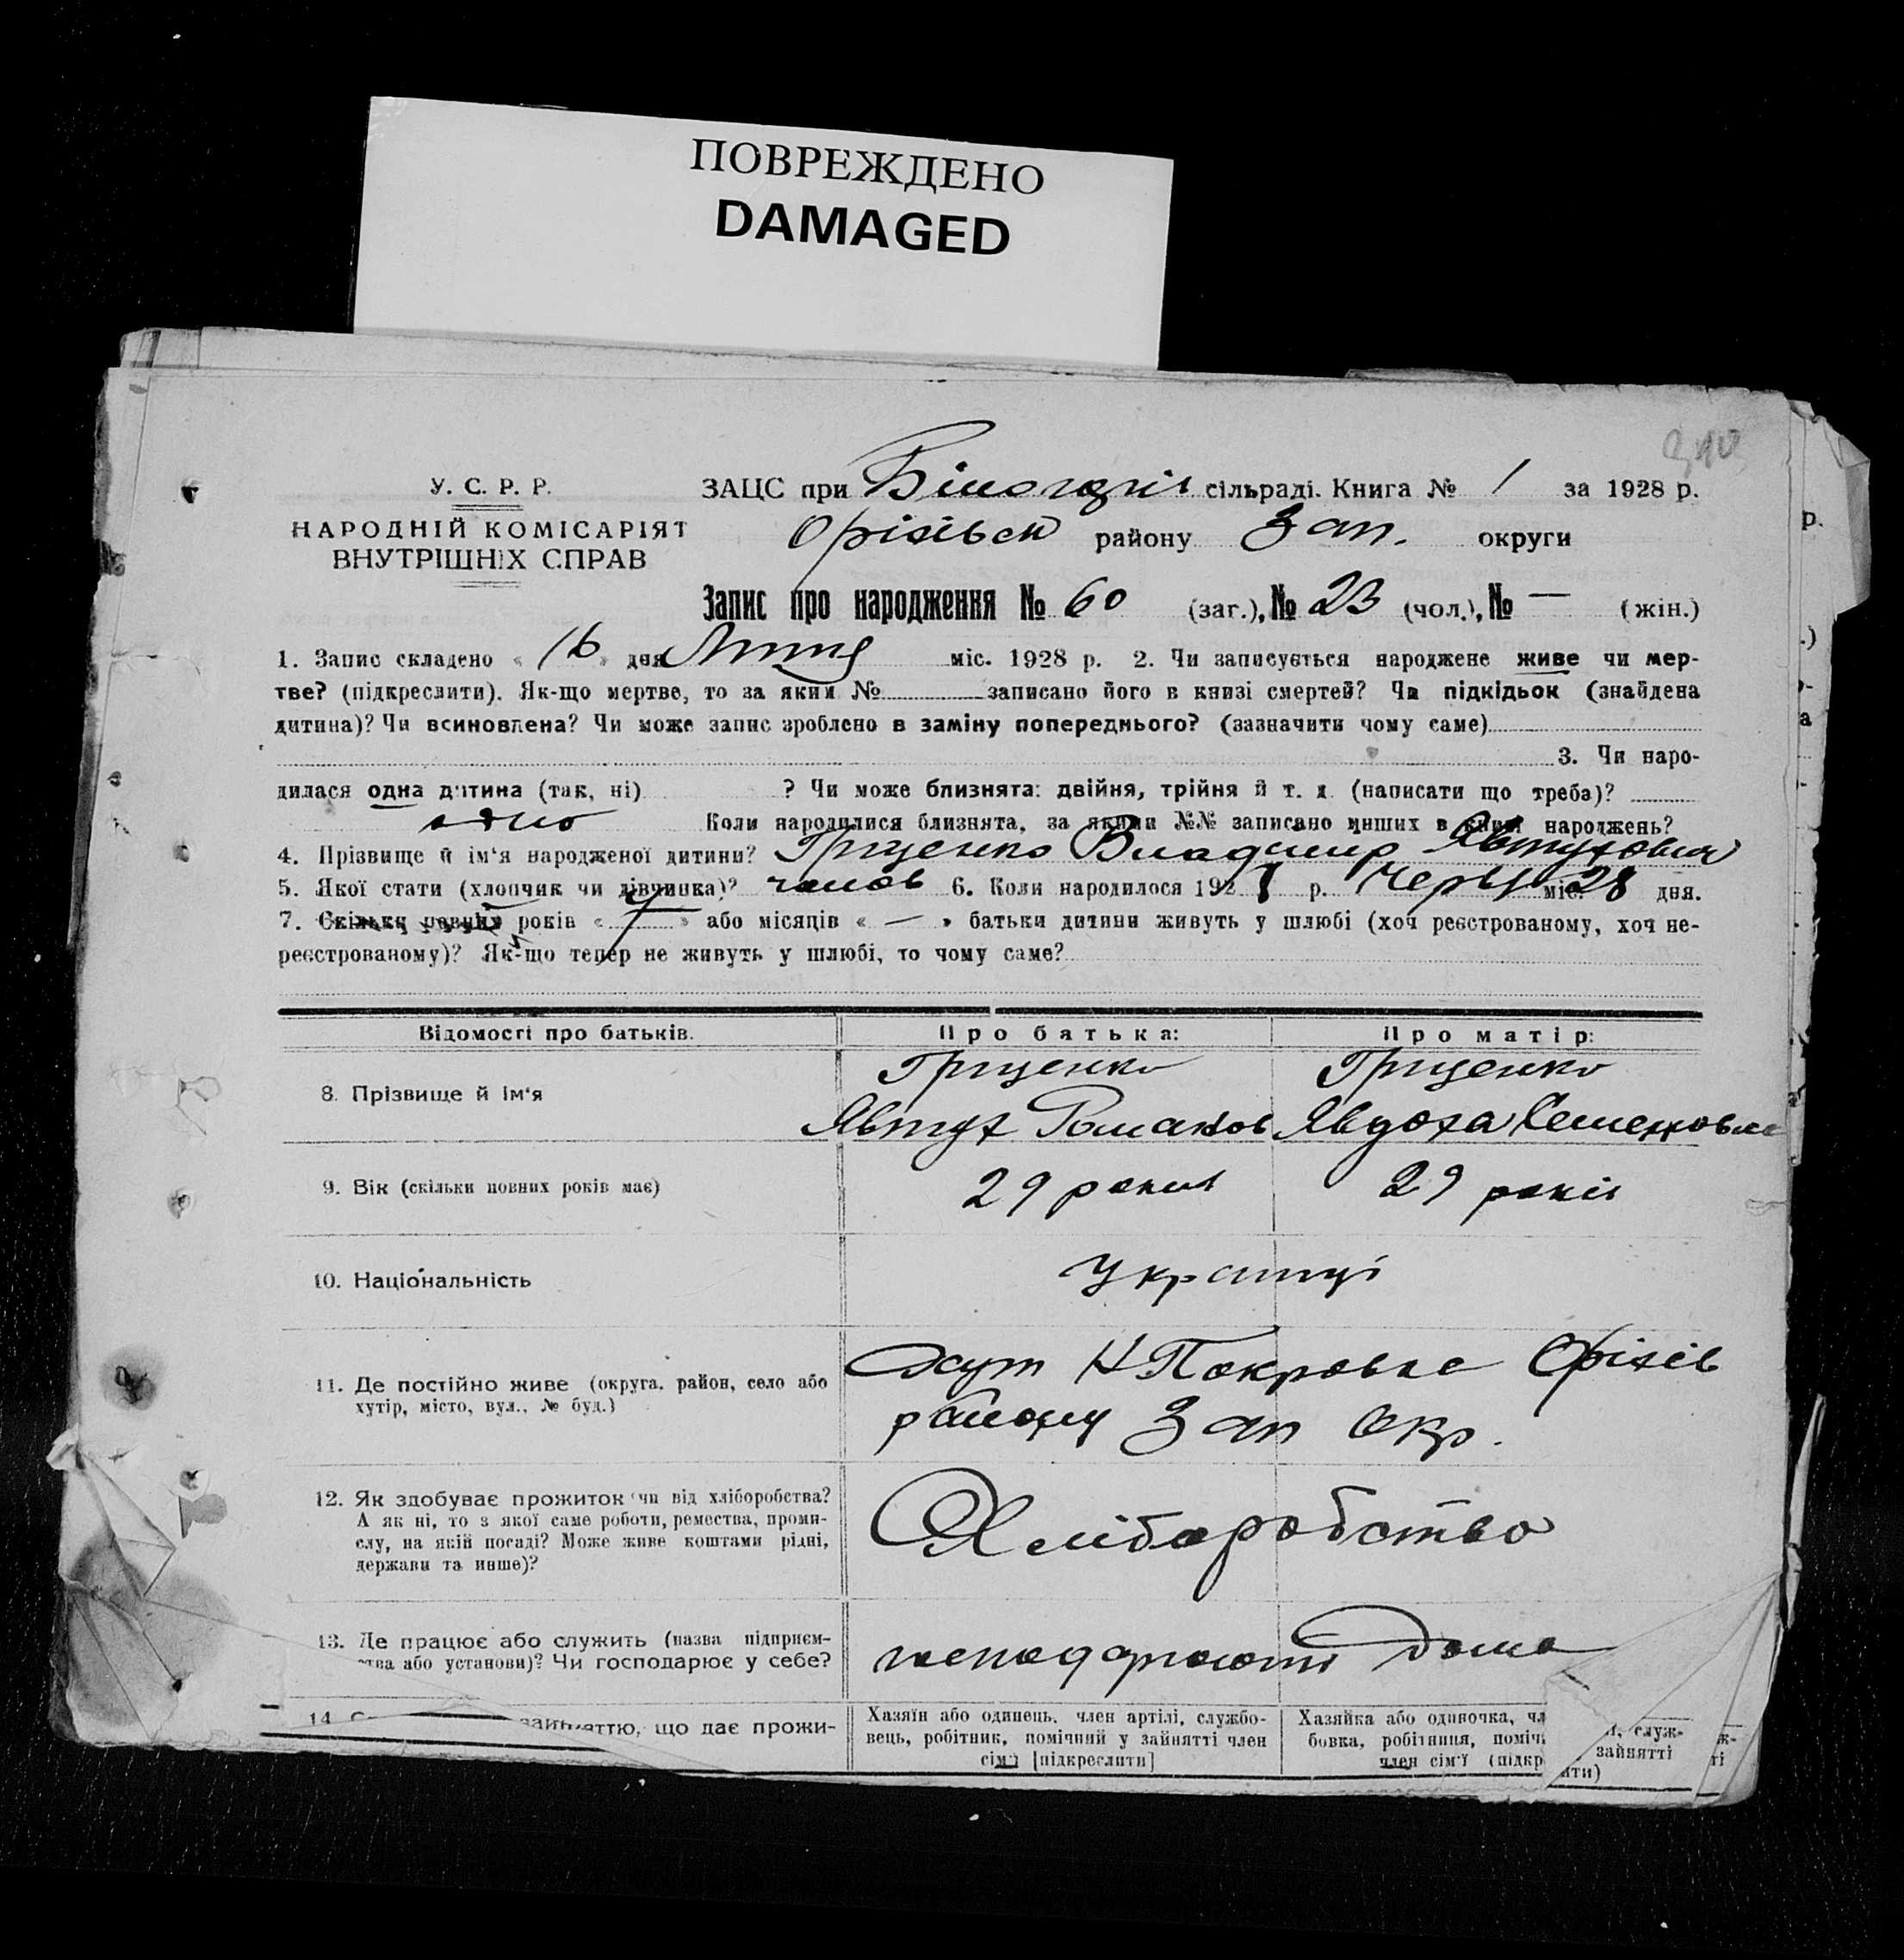 ПОВРЕЖДЕНО
DAMAGED
310
У. С. Р. Р.
НАРОДНІЙ КОМІСАРІЯТ
ВНУТРІШНІХ СПРАВ
ЗАЦС при сільраді. Книга № 1 за 1928 р.
Оріхівськ району Зап. округи
Запис про народження № 60 (заг.), № 23 (чол.), № — (жін.)
1. Запис складено « 16 » дня Липня міс. 1928 р. 2. Чи записується народжене живе чи мер-
тве? (підкреслити). Як-що мертве, то за яким № записано його в книзі смертей? Чи підкідьок (знайдена
дитина)? Чи всиновлена? Чи може запис зроблено в заміну попереднього? (зазначити чому саме)
3. Чи наро-
дилася одна дитина (так, ні) ? Чи може близнята: двійня, трійня й т. д. (написати що треба)?
одно Коли народилися близнята, за якими №№ записано инших в книзі народжень?
4. Прізвище й ім'я народженої дитини? Грищенко Владимир Явтухович
5. Якої стати (хлопчик чи дівчинка)? чолов 6. Коли народилося 1928 р. Червц міс. 28 дня.
7. Скільки повних років « 7 » або місяців « — » батьки дитини живуть у шлюбі (хоч реєстрованому, хоч не-
реєстрованому)? Як-що тепер не живуть у шлюбі, то чому саме?
Відомості про батьків. Про батька: Про матір:
Грищенко Грищенко
8. Прізвище й ім'я
Явтух Романов Явдоха Семеновна
9. Вік (скільки повних років має) 29 років 29 років
10. Національність Українці
11. Де постійно живе (округа, район, село або
хутір, місто, вул., № буд.)
Хут Н Покровка Оріхів
району Зап Окр.
12. Як здобуває прожиток чи від хліборобства?
А як ні, то з якої саме роботи, ремества, проми-
слу, на якій посаді? Може живе коштами рідні,
держави та инше)?
Хліборобство
13. Де працює або служить (назва підприєм-
ства або установи)? Чи господарює у себе?
Дома
14. заняттю, що дає прожи-
Хазяїн або одинець, член артілі, службо-
вець, робітник, помічний у зайнятті член
сім'ї [підкреслити]
Хазяйка або одиночка, служ-
бовка, робітниця, зайнятті
член сім'ї